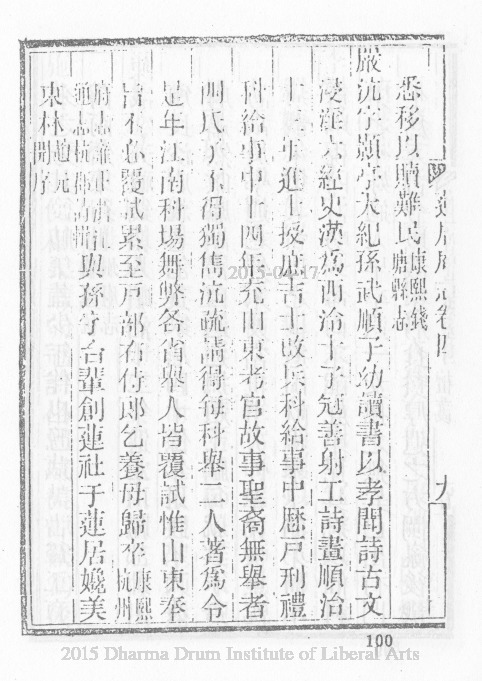 蓮居庵志卷四　九
悉移以贖難民康熙錢塘縣志
嚴沆字顥亭大紀孫武順子幼讀書以孝聞詩古文
浸淫六經史漢為西泠十子冠善射工詩畫順治
十二年進士授庶吉士改兵科給事中歷戶刑禮
科給事中十四年充山東考官故事聖裔無舉者
四氏子不得獨雋沆疏請得每科舉二人著爲令
是年江南科場舞弊各省舉人皆覆試惟山東奉
旨不必覆試累至戶部右侍郎乞養母歸卒康熙杭州
府志雍正浙江通志杭郡詩輯與孫宇台輩創蓮社于蓮居媲美
東林
100
2015-04-17
2015 Dharma Drum Institute of Liberal Arts